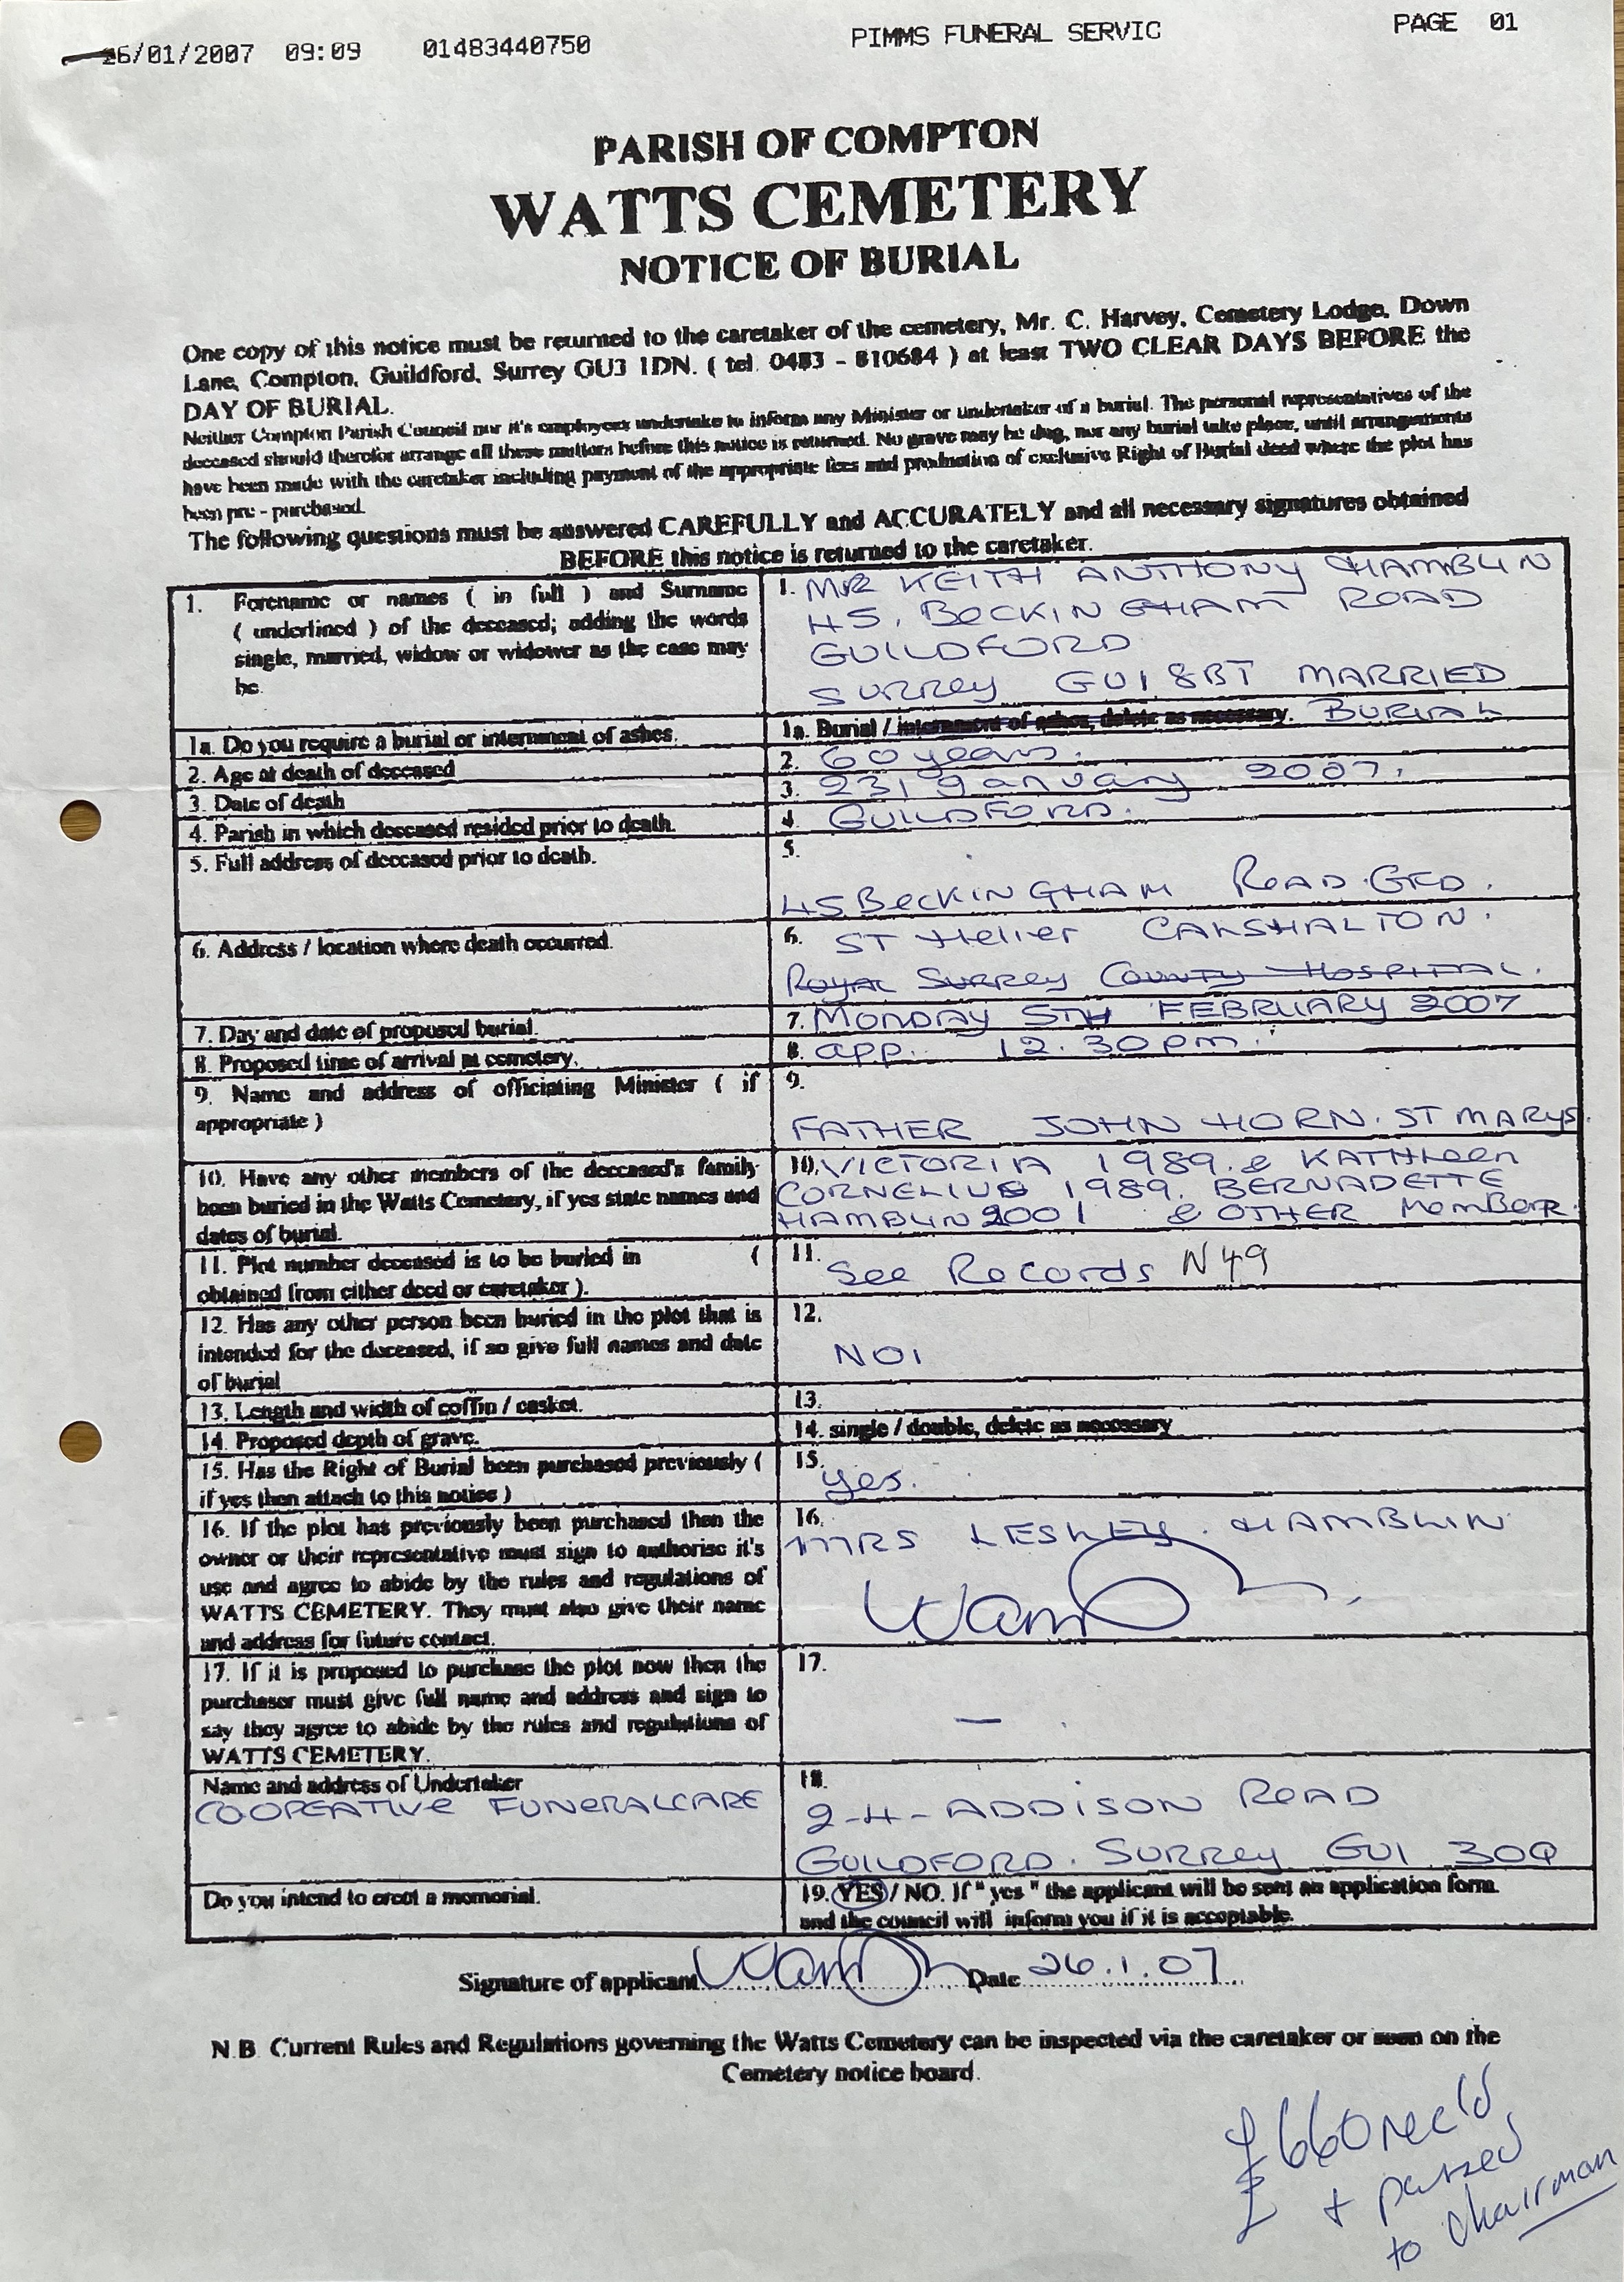 26/01/2007 09:09 01483440750 PIMMS FUNERAL SERVIC PAGE 01
PARISH OF COMPTON
WATTS CEMETERY
NOTICE OF BURIAL
One copy of this notice must be returned to the caretaker of the cemetery, Mr. C. Harvey, Cemetery Lodge, Down
Lane, Compton, Guildford, Surrey GU3 1DN. ( tel. 0483 - 810684 ) at least TWO CLEAR DAYS BEFORE the
DAY OF BURIAL.
Neither Compton Parish Council nor it's employees undertake to inform any Minister or undertaker of a burial. The personal representatives of the
deceased should therefor arrange all these matters before this notice is returned. No grave may be dug, nor any burial take place, until arrangements
have been made with the caretaker including payment of the appropriate fees and production of exclusive Right of Burial deed where the plot has
been pre - purchased.
The following questions must be answered CAREFULLY and ACCURATELY and all necessary signatures obtained
BEFORE this notice is returned to the caretaker.
1. Forename or names ( in full ) and Surname
( underlined ) of the deceased; adding the words
single, married, widow or widower as the case may
be.
1. MR KEITH ANTHONY HAMBLIN
45, BECKINGHAM ROAD
GUILDFORD
SURREY GU1 8BT MARRIED
1a. Do you require a burial or interment of ashes.
1a. Burial / interment of ashes, delete as necessary. BURIAL
2. Age at death of deceased
2. 60 years.
3. Date of death
3. 23, January 2007.
4. Parish in which deceased resided prior to death.
4. GUILDFORD.
5. Full address of deceased prior to death.
5.
45 BECKINGHAM ROAD. GFD.
6. Address / location where death occurred.
6. ST Helier CARSHALTON.
ROYAL SURREY COUNTY HOSPITAL.
7. Day and date of proposed burial.
7. MONDAY 5TH FEBRUARY 2007
8. Proposed time of arrival at cemetery.
8. app. 12.30pm.
9. Name and address of officiating Minister ( if
appropriate )
9.
FATHER JOHN HORN. ST MARYS.
10. Have any other members of the deceased's family
been buried in the Watts Cemetery, if yes state names and
dates of burial.
10. VICTORIA 1989. & KATHLEEN
CORNELIUS 1989. BERNADETTE
HAMBLIN 2001 & OTHER MEMBERR
11. Plot number deceased is to be buried in (
obtained from either deed or caretaker ).
11. See Records N49
12. Has any other person been buried in the plot that is
intended for the deceased, if so give full names and date
of burial
12.
NO,
13. Length and width of coffin / casket.
13.
14. Proposed depth of grave.
14. single / double, delete as necessary
15. Has the Right of Burial been purchased previously (
if yes then attach to this notice )
15. yes.
16. If the plot has previously been purchased then the
owner or their representative must sign to authorise it's
use and agree to abide by the rules and regulations of
WATTS CEMETERY. They must also give their name
and address for future contact.
16.
MRS LESLEY. HAMBLIN
17. If it is proposed to purchase the plot now then the
purchasor must give full name and address and sign to
say they agree to abide by the rules and regulations of
WATTS CEMETERY.
17.
—
Name and address of Undertaker
COOPERATIVE FUNERALCARE
18.
2-4- ADDISON ROAD
GUILDFORD. SURREY GU1 3QQ
Do you intend to erect a memorial.
19. YES / NO. If " yes " the applicant will be sent an application form
and the council will inform you if it is acceptable.
Signature of applicant Date 26.1.07
N.B. Current Rules and Regulations governing the Watts Cemetery can be inspected via the caretaker or seen on the
Cemetery notice board.
£660 rec'd
+ passed
to chairman